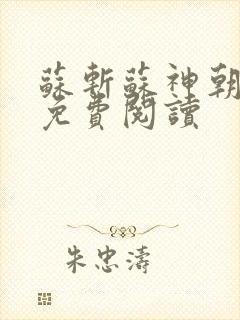 蘇斬蘇神朝
免費閱讀
朱忠濤